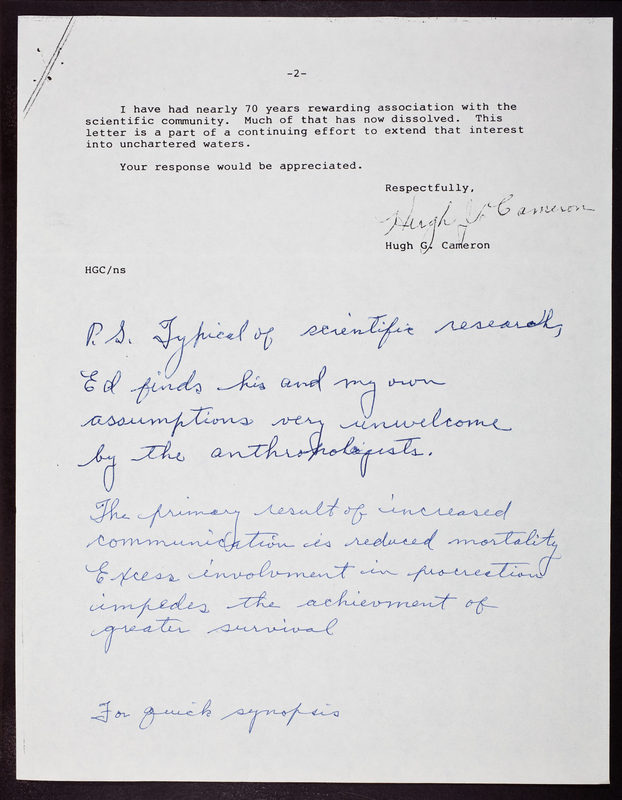 -2-
I have had nearly 70 years rewarding association with the
scientific community. Much of that has now dissolved. This
letter is a part of a continuing effort to extend that interest
into unchartered waters.
Your response would be appreciated.
Respectfully,
Hugh G. Cameron
Hugh G. Cameron
HGC/ns
P.S. Typical of scientific research,
Ed finds his and my own
assumptions very unwelcome
by the anthropologists.
The primary result of increased
communication is reduced mortality
Excess involvment in procreation
impedes the achievment of
greater survival
For quick synopsis